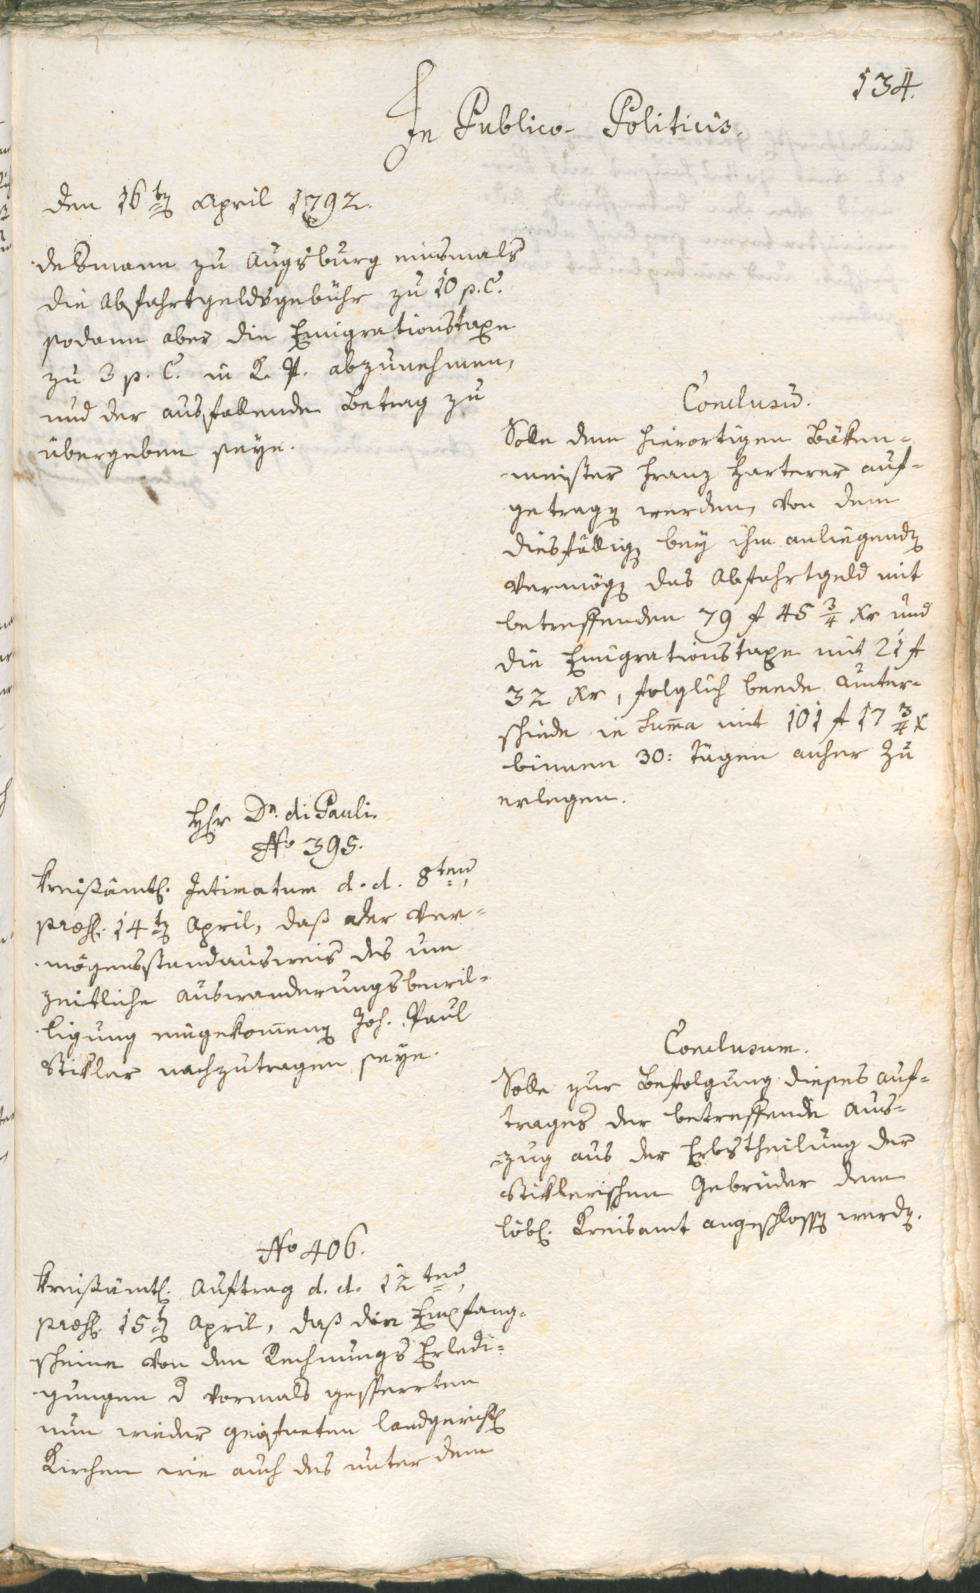 134.
In Publico-Politicis.
den 16ten April 1792.
desmann zu Augsburg einsmals
die Abfahrtgeldsgebühr zu 10 p. C.
sodann aber die Emigrationstaxe
zu 3 p. C. in abzunehmen,
und der ausfallende Betrag zu
übergeben seye.
Conclusū.
Solle dem hierortigen Bäken-
meister Franz Harterer auf-
getragen werden, von dem
diesfällig bey ihm anliegenden
Vermögen das Abfahrtgeld mit
betreffenden 79 f 45 3/4 Xr und
die Emigrationstaxe mit 21 f
32 Xr, folglich beede Unter-
schiede in Suma mit 101 f 17 3/4 X
binnen 30: Tägen anher zu
erlegen.
Hr Dn. di Pauli.
No 395.
Kreisämtl. Intimatum d. d. 8ten,
præs. 14ten April, daß der Ver-
mögensstandausweis des um
zeitliche Auswanderungsbewil-
ligung eingekomenen Joh. Paul
Stikler nachzutragen seye.
Conclusum.
Solle zur Befolgung dieses Auf-
trages der betreffende Aus-
zug aus der Erbstheilung der
Stiklerischen Gebrüder dem
löbl. Kreisamt angeschlossen werden.
No 406.
Kreisämtl. Auftrag d. d. 12ten,
præs. 15ten April, daß die Empfang-
scheine von den Rechnungs Erledi-
gungen d vormals gesperrten
nun wieder geöfneten landgerichtl
Kirchen wie auch des unter dem